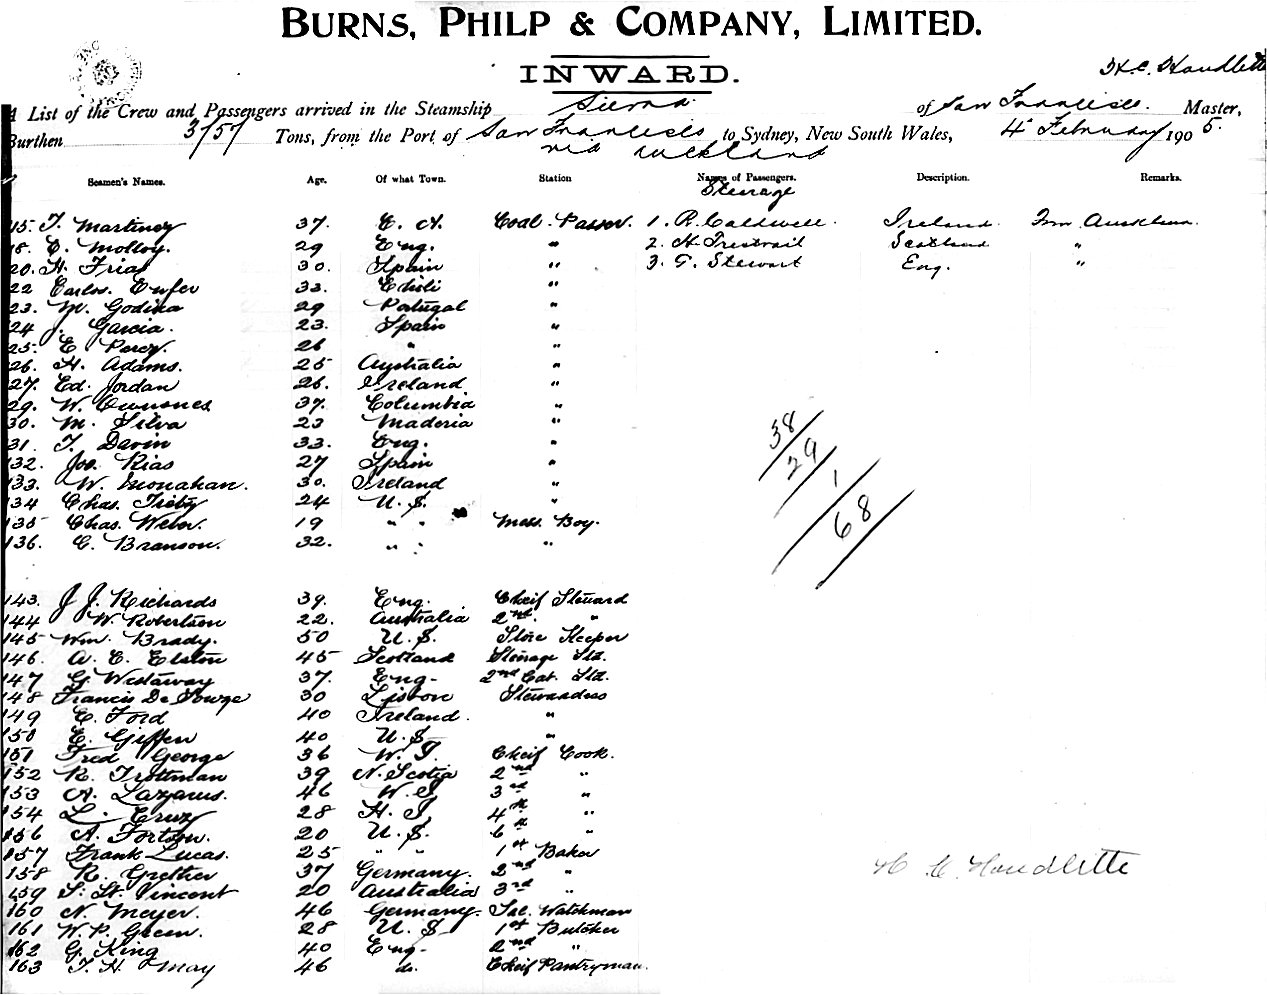 BURNS, PHILP & COMPANY, LIMITED.
INWARD.
H.C. Houdlette
A List of the Crew and Passengers arrived in the Steamship Sierra of San Francisco. Master,
Burthen 3157 Tons, from the Port of San Francisco to Sydney, New South Wales, 4th February 1905.
via Auckland
Seamen's Names. Age. Of what Town. Station Names of Passengers. Description. Remarks.
Steerage
15. T. Martinez 37. C. A. Coal Passer. 1. R. Caldwell. Ireland From Auckland.
18. C. Molloy. 29 Eng. " 2. H. Trestrail Scotland "
20. H. Frias 30. Spain " 3. T. Stewart Eng. "
22 Carlos. 33. Chili "
23. M. Godina 29 Portugal "
24 J. Garcia. 23. Spain "
25. E Perez. 26 " "
26. H. Adams. 25 Australia "
27. Ed. Jordan 26. Ireland "
29. W. 37. Columbia "
30. M. Silva 23 Maderia "
31. T. Davin 33. Eng. "
132. Jos. Rias 27 Spain "
133. W. Monahan. 30. Ireland "
134 Chas. 24 U. S. "
135 Chas. Weber. 19 " " Mess. Boy.
136. C. Branson. 32. " " "
38
29
1
68
143. J. J. Richards 39. Eng. Cheif Steward
144 W. Robertson 22. Australia 2nd. "
145 Wm. Brady. 50 U. S. Store Keeper
146. A. E. Elston 45 Scotland Steerage Std.
147 G. Westaway 37. Eng- 2nd Cab. Std.
148 Francis De Souze 30 Lisbon Stewardess
149 C. Ford 40 Ireland. "
150 E. Giffen 40 U. S. "
151 Fred George 36 W. I. Cheif Cook.
152 R. Trottman 39 N. Scotia 2nd "
153 A. Lazarus. 46 W. I 3rd "
154 L. Cruz 28 H. I 4th "
156 A. Fortson. 20 U. S. 6th "
157 Frank Lucas. 25 " " 1st Baker
158 R. Grether 37 Germany. 2nd "
159 S. St. Vincent 20 Australia 3rd "
H. C. Houdlette
160 N. Meyer. 46 Germany- Sal. Watchman
161 W. P. Green. 28 U. S 1st Butcher
162 G. King 40 Eng- 2nd "
163 T. H. May 46 do. Cheif Pantryman.